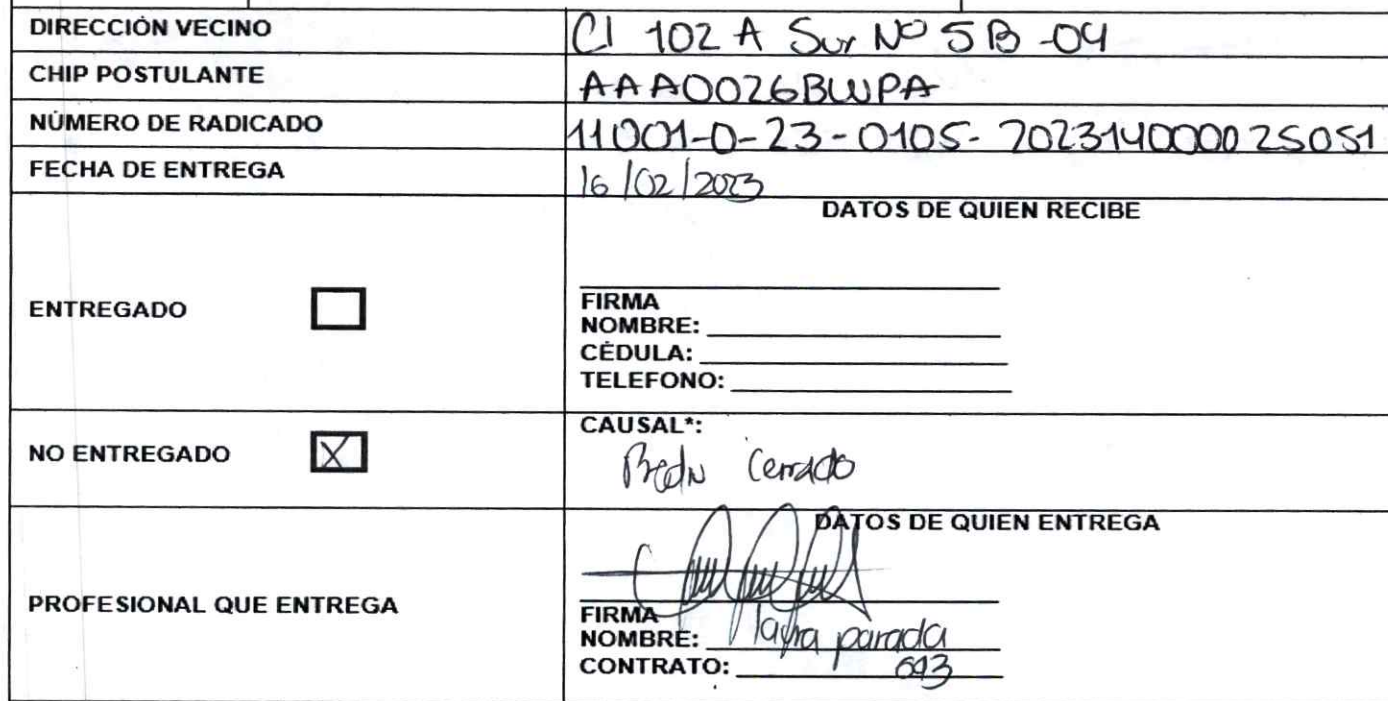 DIRECCIÓN VECINO Cl 102 A Sur Nº 5B-04
CHIP POSTULANTE AAA0026BWPA
NÚMERO DE RADICADO 11001-0-23-0105-202314000025051
FECHA DE ENTREGA 16/02/2023
DATOS DE QUIEN RECIBE
ENTREGADO
FIRMA
NOMBRE:
CÉDULA:
TELEFONO:
NO ENTREGADO X
CAUSAL*:
Predio Cerrado
DATOS DE QUIEN ENTREGA
PROFESIONAL QUE ENTREGA
FIRMA
NOMBRE: parada
CONTRATO: 693